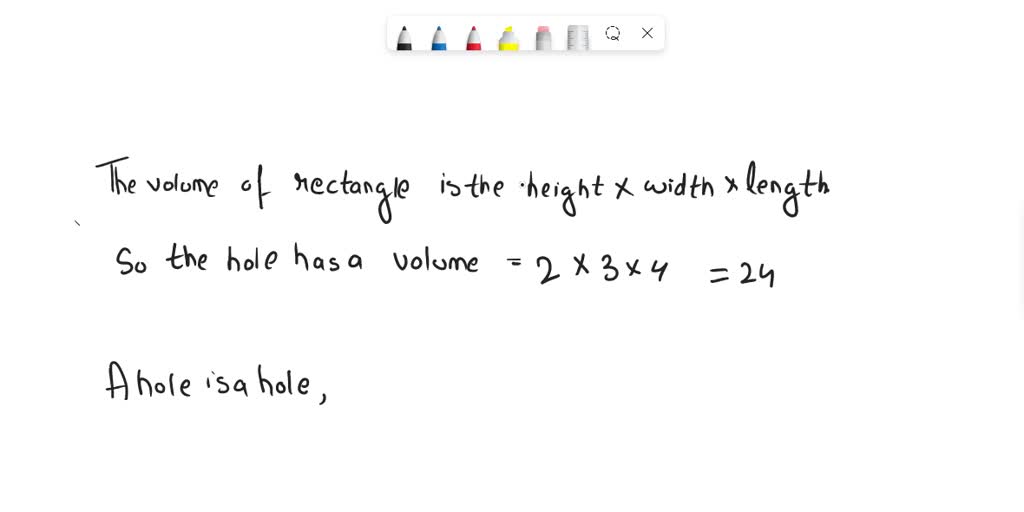 The volume of rectangle is the height x width x length
So the hole has a volume = 2 x 3 x 4 = 24
A hole is a hole,